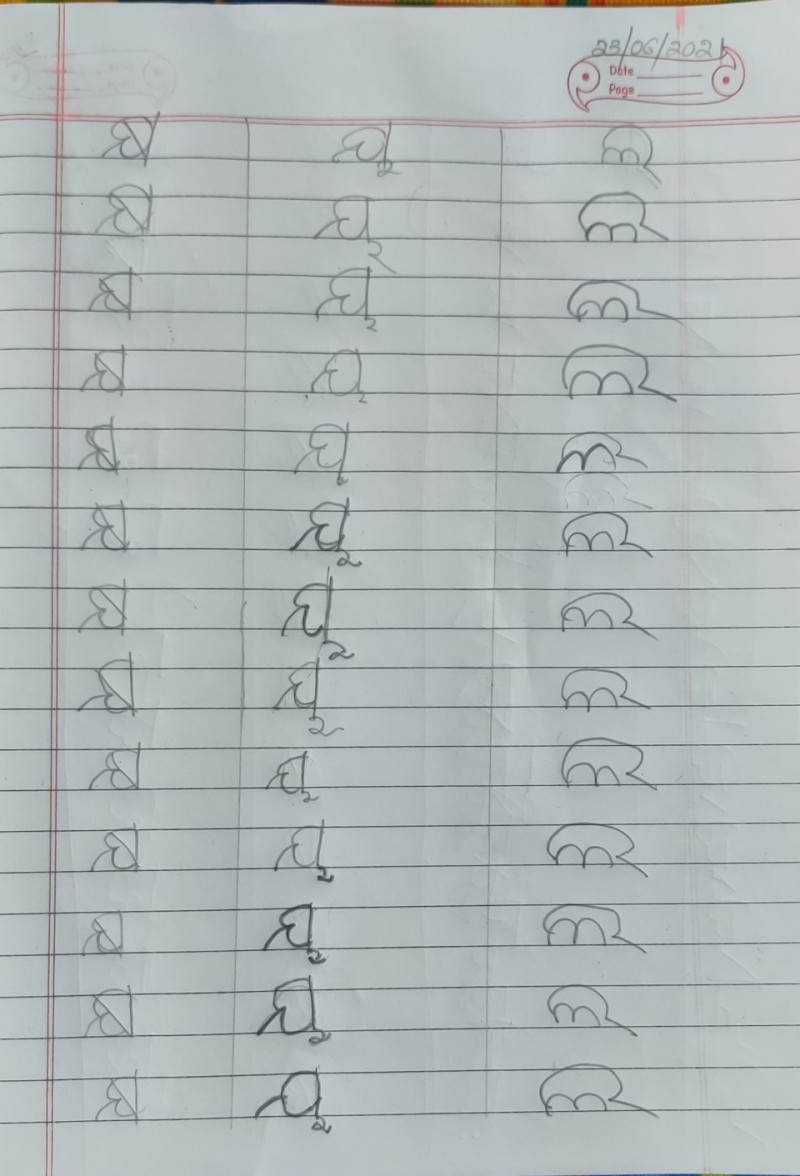 23/06/2021
Date
Page
ଷ ୟ ଳ
ଷ ୟ ଳ
ଷ ୟ ଳ
ଷ ୟ ଳ
ଷ ୟ ଳ
ଷ ୟ ଳ
ଷ ୟ ଳ
ଷ ୟ ଳ
ଷ ୟ ଳ
ଷ ୟ ଳ
ଷ ୟ ଳ
ଷ ୟ ଳ
ଷ ୟ ଳ